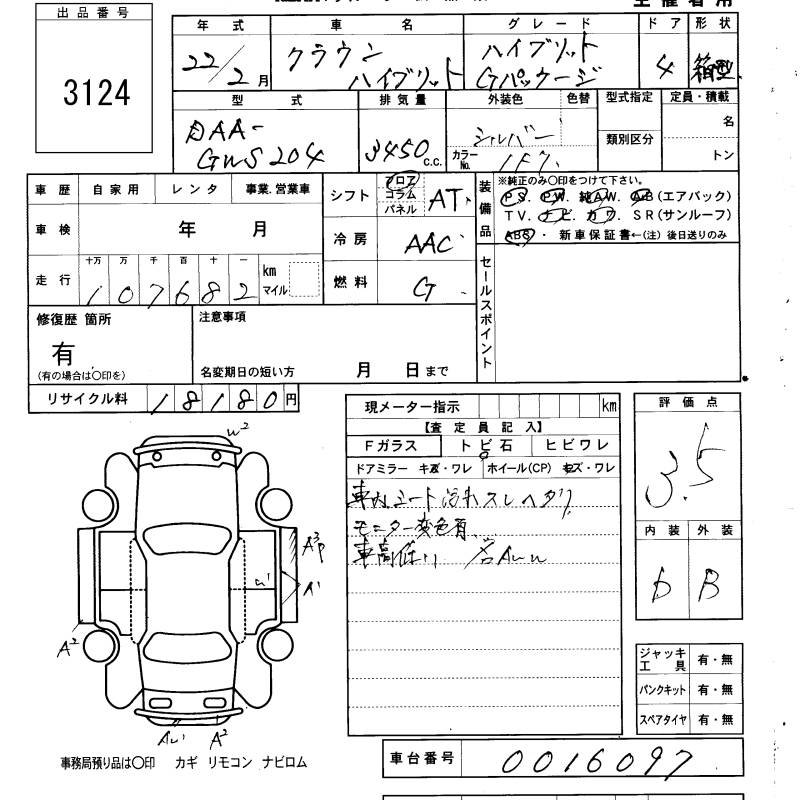 出品番号
3124
年式 車名 グレード ドア 形状
22/2月 クラウン ハイブリット 4 箱型
ハイブリット Gパッケージ
型式 排気量 外装色 色替 型式指定 定員・積載
DAA- シルバー 名
GWS204 3450c.c. カラーNo. 1F7 類別区分 トン
車歴 自家用 レンタ 事業.営業車
車検 年 月
走行 十万 万 千 百 十 一
107682 km マイル
シフト フロア コラム パネル AT
冷房 AAC
燃料 G
装備品 ※純正のみ〇印をつけて下さい。
PS. PW. 純AW. AB(エアバック)
TV. ナビ. カワ. SR(サンルーフ)
ABS・ 新車保証書←(注) 後日送りのみ
セールスポイント
修復歴 箇所 注意事項
有
(有の場合は〇印を) 名変期日の短い方 月 日まで
リサイクル料 18180円
現メーター指示 km
【査定員記入】
Fガラス トビ石 ヒビワレ
ドアミラー キズ・ワレ ホイール(CP) キズ・ワレ
車内シート汚れスレヘタリ
モニター変色有
車高低い
評価点
3.5
内装 外装
D B
W2
A3P
U1
A1
A2
A2
ジャッキ 工具 有・無
パンクキット 有・無
スペアタイヤ 有・無
事務局預り品は〇印 カギ リモコン ナビロム
車台番号 0016097